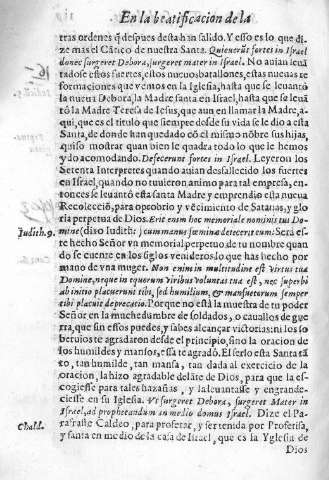 En la beatificacion de la
tras ordenes q̃ despues desta han salido. Y esso es lo que di-
ze mas el Cãtico de nuestra Santa. Quieuerũt fortes in Israel
donec surgeret Debora, surgeret mater in Israel. No auian leuã
tadose estos fuertes, estos nueuos batallones, estas nueuas re
formaciones que vemos en la Iglesia, hasta que se leuantò
la nueua Debora, la Madre santa en Israel, hasta que se leuã
tò la Madre Teresa de Iesus, que aun en llamar la Madre, a-
qui, que es el titulo que siempre desde su vida se le dio a esta
Santa, de donde han quedado cõ el mismo nõbre sus hijas,
quiso mostrar quan bien le quadra todo lo que le hemos
ydo acomodando. Defecerunt fortes in Israel. Leyeron los
Setenta Interpretes quando auian desfallecido los fuertes
en Israel, quando no tuuieron animo para tal empresa, en-
tonces se leuantò esta santa Madre y emprendio esta nueua
Recolecciõ, para oprobrio y vécimiento de Satanas, y glo
ria perpetua de Dios. Erit enim hoc memoriale nominis tuo Do-
Judith. 9. mine (dixo Iudith) cum manus fœminæ deiecerit eum: Será es-
te hecho Señor vn memorial perpetuo de tu nombre quan
do se cuente en los siglos venideros lo que has hecho por
mano de vna muger. Non enim in multitudine est virtus tua
Domine, neque in equorum viribus voluntas tua est, nec superbi
ab initio placuerunt tibi, sed humilium, & mansuetorum semper
tibi placuit deprecatio. Porque no está la muestra de tu poder
Señor en la muchedumbre de soldados, o cauallos de guer
ra, que sin essos puedes, y sabes alcançar victorias: ni los so
beruios te agradaron desde el principio, sino la oracion de
los humildes y mansos, essa te agradò. El serlo esta Santa tã
to, tan humilde, tan mansa, tan dada al exercicio de la
oracion, la hizo agradable delãte de Dios, para que la es-
cogiesse para tales hazañas, y la leuantasse y engrande-
ciesse en su Iglesia. Vt surgeret Debora, surgeret Mater in
Israel, ad prophetandum in medio domus Israel. Dize el Pa-
Chald. rafraste Caldeo, para profetar, y ser tenida por Profetisa,
y santa en medio de la casa de Israel, que es la Yglesia de
Dios